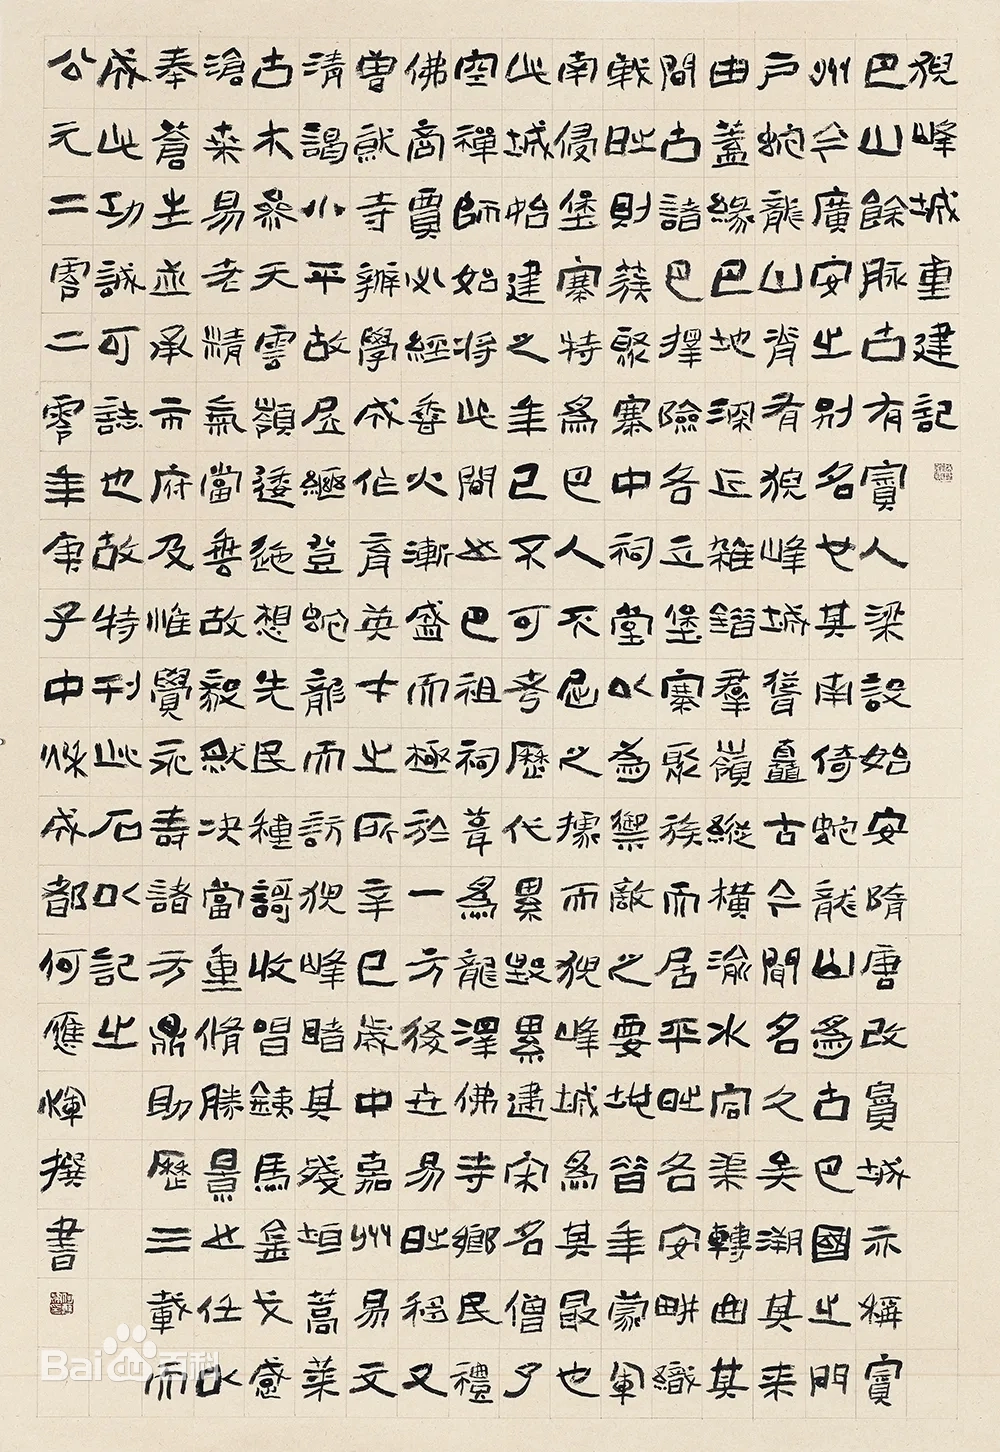 猊峰城重建記
巴山餘脈古有賨人梁設始安隋唐改賨城亦稱賨
州今廣安之別名也其南倚蛇龍山爲古巴國之門
戶蛇龍山脊有猊峰城聳矗古今間名久矣溯其来
由蓋緣巴地深丘雜錯羣嶺縱橫渝水宕渠轉曲其
間古諸巴擇險各立堡寨聚族而居平时各安畊織
戰时則蔟聚寨中祠堂以為禦敵之要地昔年蒙軍
南侵堡寨特爲巴人不屈之據而猊峰城爲其最也
此城始建之年已不可考歷代累毀累建宋名僧了
空禪師始将此間巴祖祠葺爲龍澤佛寺鄉民禮
佛商賈必經香火漸盛而極於一方後世易时移又
曾猷寺辦學成作育英才之所辛巳歲中嘉州易文
清謁小平故居繼登蛇龍而訪猊峰睹其殘垣蒿莱
古木參天雲嶺逶迤想先民種謌收唱鐵馬金戈感
滄桑易老精氣當故毅猷决當重脩勝景也任以
奉蒼生並承市府及惟覺永壽諸方鼎助歷三載而
成此功誠可誌也故特刊此石以記之
公元二零二零年庚子中秋成都何應輝撰書
Bai百科